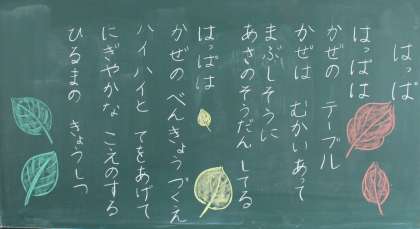 はっぱ
はっぱは
かぜの テーブル
かぜは むかいあって
まぶしそうに
あさのそうだん してる
はっぱは
かぜの べんきょうづくえ
ハイ ハイと てをあげて
にぎやかな こえのする
ひるまの きょうしつ